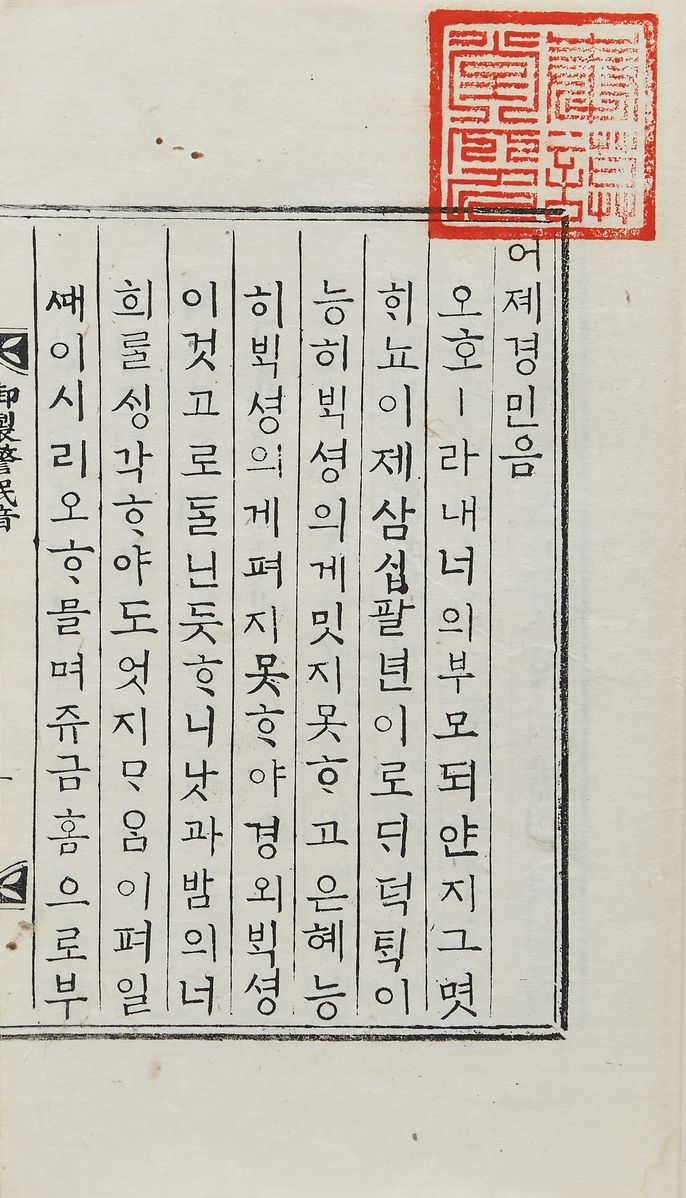 어졔경민음
오호ㅣ라내너의부모되얀지그몃
ᄒᆡ뇨이제삼십팔년이로ᄃᆡ덕ᄐᆡᆨ이
능히ᄇᆡᆨ셩의게밋지못ᄒᆞ고은혜능
히ᄇᆡᆨ셩의게펴지못ᄒᆞ야경외ᄇᆡᆨ셩
이것고로돌닌듯ᄒᆞ니낫과밤의너
희ᄅᆞᆯᄉᆡᆼ각ᄒᆞ야도엇지ᄆᆞ음이펴일
ᄯᅢ이시리오ᄒᆞ믈며쥬금홈으로부
御製警民音